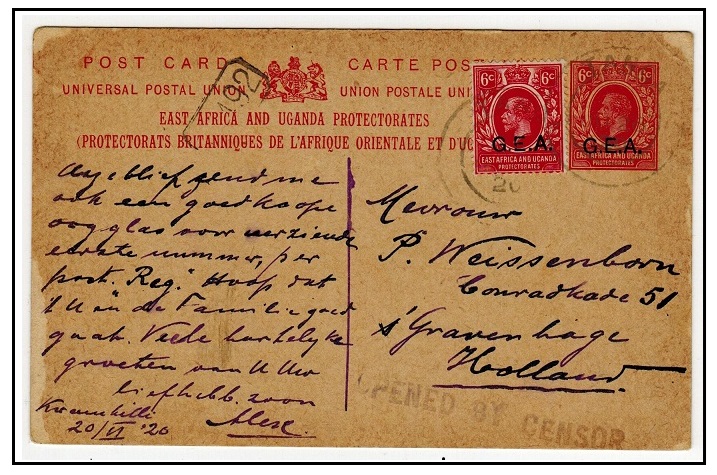 POST CARD
CARTE POST
UNIVERSAL POSTAL UNION
UNION POSTALE UNI
EAST AFRICA AND UGANDA PROTECTORATES
(PROTECTORATS BRITANNIQUES DE L'AFRIQUE ORIENTALE ET D'OU
492
6c 6c
G.E.A.
EAST AFRICA AND UGANDA
PROTECTORATES
20
6c 6c
G.E.A.
EAST AFRICA AND UGANDA
PROTECTORATES
zend me
ook een goedkoope
oogglas voor verziende
eerste nummer, per
post. "Reg." Hoop dat
U en de Familie goed
gaat. Veele hartelijke
groeten van U Uw
liefhebb. zoon
Alex.
20/VI '20
Mevrouw
P. Weissenborn
Conradkade 51
s'Gravenhage
Holland.
OPENED BY CENSOR